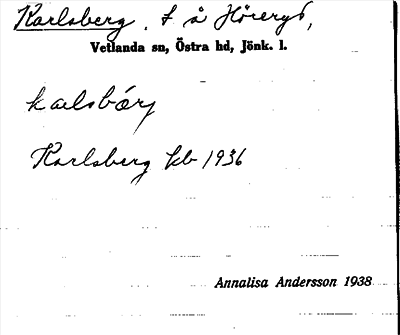 Karlsberg, t. å Höreryd,
Vetlanda sn, Östra hd, Jönk. l.
kalsbárj
Karlsberg kb 1936
Annalisa Andersson 1938